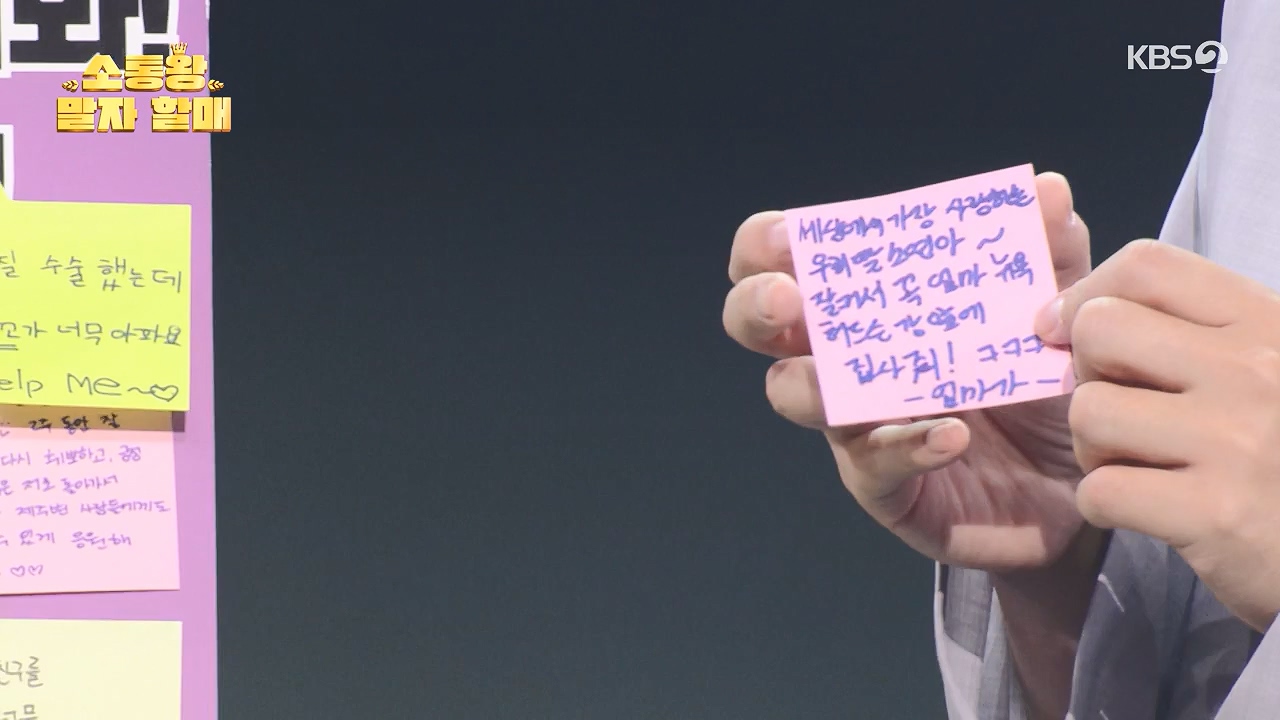 소통왕
말자 할매
KBS
질 수술 했는데
꼬가 너무 아파요
elp Me~♡
2주 동안 잘
다시 회복하고, 긍정
은 저로 돌아가서
제주변 사람들에게도
있게 응원해
♡♡
친구를
고무
세상에서 가장 사랑하는
우리 딸 소연아 ~
잘커서 꼭 엄마 뉴욕
허드슨 강 앞에
집사줘! ㅋㅋㅋ
- 엄마가 -